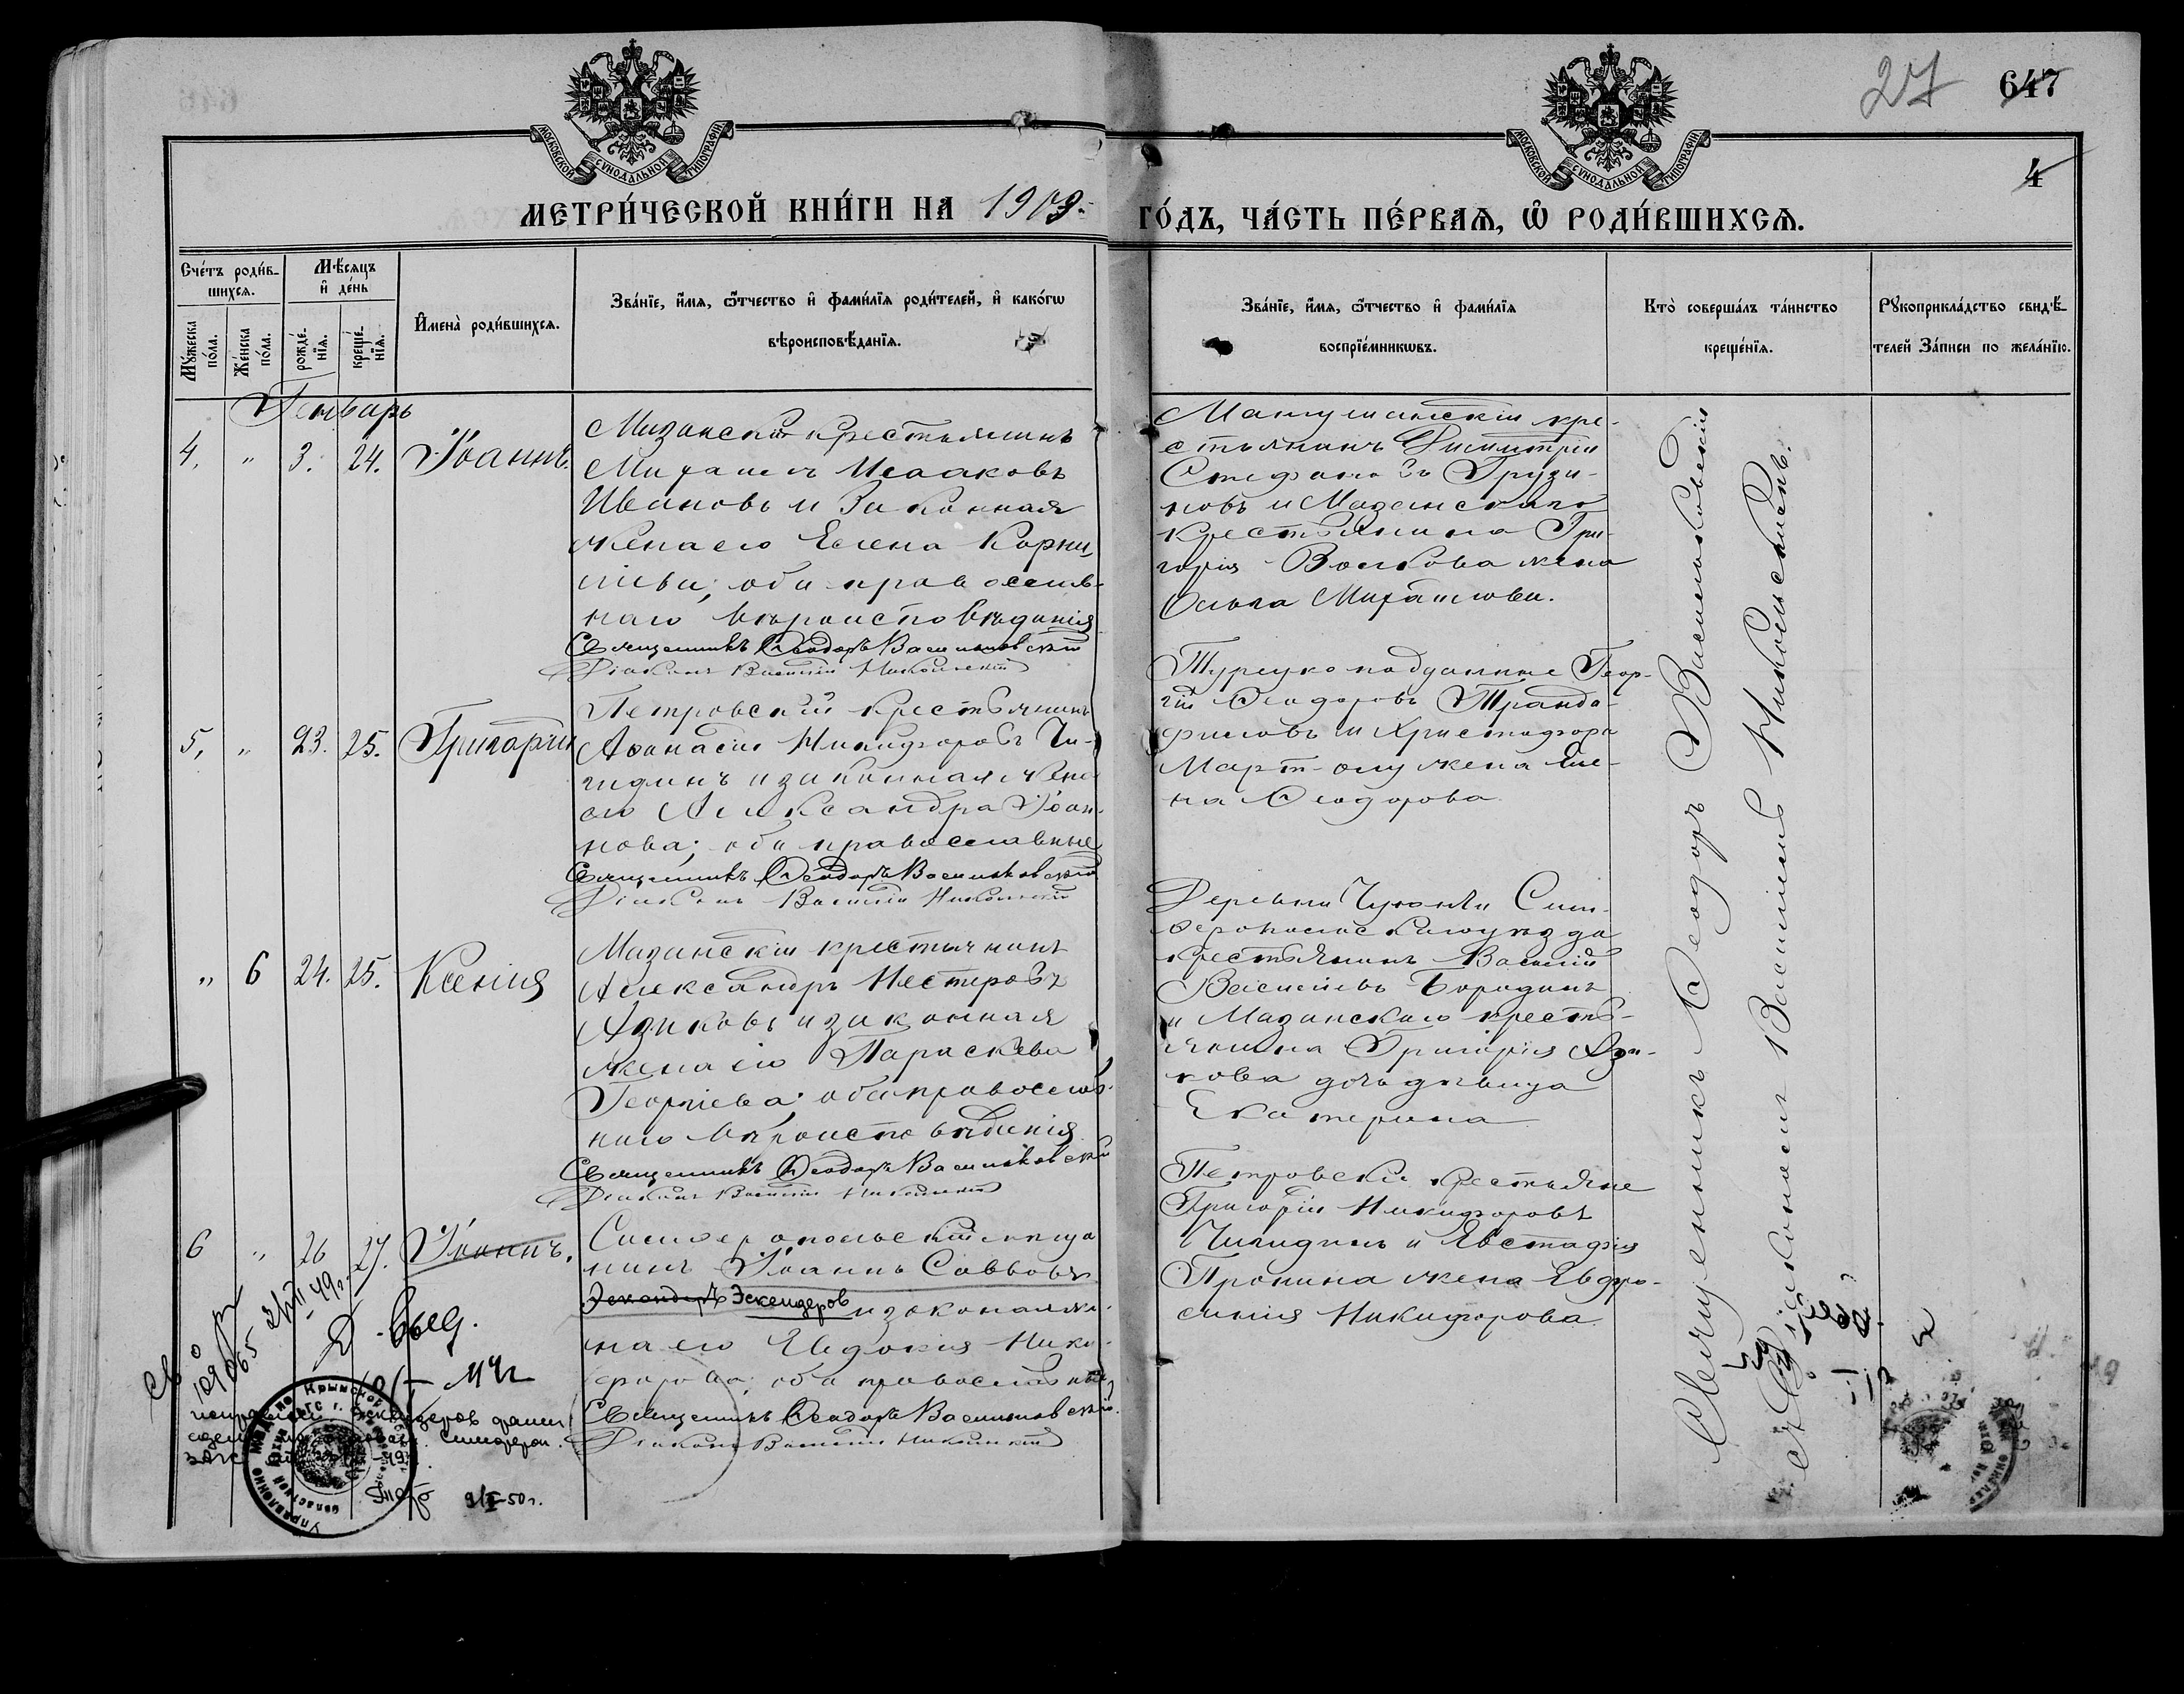 27 647
4
МОСКОВСКОЙ СѴНОДАЛЬНОЙ ТИПОГРАФІИ
МОСКОВСКОЙ СѴНОДАЛЬНОЙ ТИПОГРАФІИ
МЕТРИ́ЧЕСКОЙ КНИ́ГИ НА 1909. ГО́ДЪ, ЧА́СТЬ ПЕ́РВАѦ, Ѽ РОДИ́ВШИХСѦ.
Сче́тъ роди́в-
шихсѧ.
Мꙋ́жеска по́ла.
Же́нска по́ла.
Мѣ́сѧцъ
и҆ де́нь
рожде́-
нїѧ.
креще́-
нїѧ.
И҆мена̀ роди́вшихсѧ.
Зва́нїе, и҆́мѧ, ѻ҆́тчество и҆ фами́лїѧ роди́телей, и҆ како́гѡ
вѣроисповѣ́данїѧ.
Зва́нїе, и҆́мѧ, ѻ҆́тчество и҆ фами́лїѧ
воспрїе́мникѡвъ.
Кто̀ соверша́лъ та́инство
креще́нїѧ.
Рꙋкоприкла́дство свидѣ́-
телей За́писи по жела́нїю.
Генварь
4. „ 3. 24. Іоаннъ.
Мазанскій крестьянинъ
Михаилъ Исааковъ
Ивановъ и законная
жена его Елена Корни-
ліева; оба православ-
наго вѣроисповѣданія
Священникъ Ѳеодоръ Васильковскій
Діаконъ Василій Никольскій
Мангушскій кре-
стьянинъ Димитрій
Стефановъ Грузи-
новъ и Мазанскаго
крестьянина Гри-
горія Волкова жена
Ольга Михайлова.
5. „ 23. 25. Григорій
Петровскій крестьянинъ
Аѳанасій Никифоровъ Чи-
гидинъ и законная жена
его Александра Іоан-
нова; оба православные
Священникъ Ѳеодоръ Васильковскій
Діаконъ Василій Никольскій
Турецко подданные Геор-
гій Ѳеодоровъ Транда-
филовъ и Христофора
Март-оглу жена Еле-
на Ѳеодорова.
„ 6 24. 25. Ксенія
Мазанскій крестьянинъ
Александръ Нестеровъ
Азиковъ и законная
жена его Параскева
Георгіева; оба православ-
наго вѣроисповѣданія
Священникъ Ѳеодоръ Васильковскій
Діаконъ Василій Никольскій
Деревни Сим-
феропольскаго уѣзда
крестьянинъ Василій
Васильевъ Бородинъ
и Мазанскаго кресть-
янина Григорія Ази-
кова дочь дѣвица
Екатерина
6 „ 26 27. Іоаннъ.
Симферопольскій мѣща
нинъ Іоаннъ Савовъ
Эскендеров и законная же-
на его Евдокія Ники-
форова; оба православные
Священникъ Ѳеодоръ Васильковскій.
Діаконъ Василій Никольскій
Петровскіе крестьяне
Григорій Никифоровъ
Чигидинъ и Евстафія
Пронина жена Евфро-
синія Никифорова
Священникъ Ѳеодоръ Васильковскій
съ Діакономъ Василіемъ Никольскимъ.
Эскендеров
Симфероп.
9/I-50г.